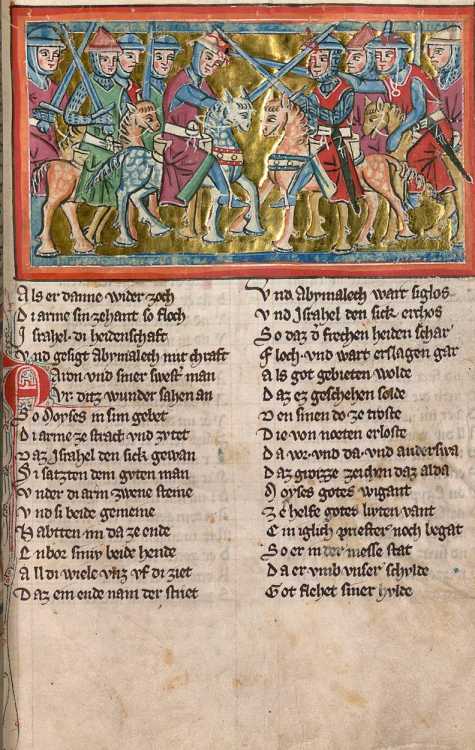 Als er danne wider zoch
Di arme sin zehant so floch
Israhel di heidenschaft
Vnd gesigt Abymalech mit chraft
Aaron vnd siner swester man
Vr ditz wunder sahen an
So Moyses in sim gebet
Di arme ze strach vnd zvtet
Daz Israhel den sick gewan
Si satzten dem gvten man
Vnder di arm zwene steine
Vnd si beide gemeine
Habtten im da ze ende
Enbor siniv beide hende
All di wiele vnz vf di ziet
Daz ein ende nam der striet
Vnd Abymalech wart siglos
Vnd Israhel den sick erchos
So daz d frechen heiden schar
Floch vnd wart erslagen gar
Als got gebieten wolde
Daz ez geschehen solde
Den sinen do ze troste
Die von noeten erloste
Da vor vnd da vnd anderswa
Daz grozze zeichen daz alda
Moyses gotes wigant
Ze helfe gotes livten vant
Ein iglich priester noch begat
So er in der messe stat
Da er vmb vnser schvlde
Got flehet siner hvlde